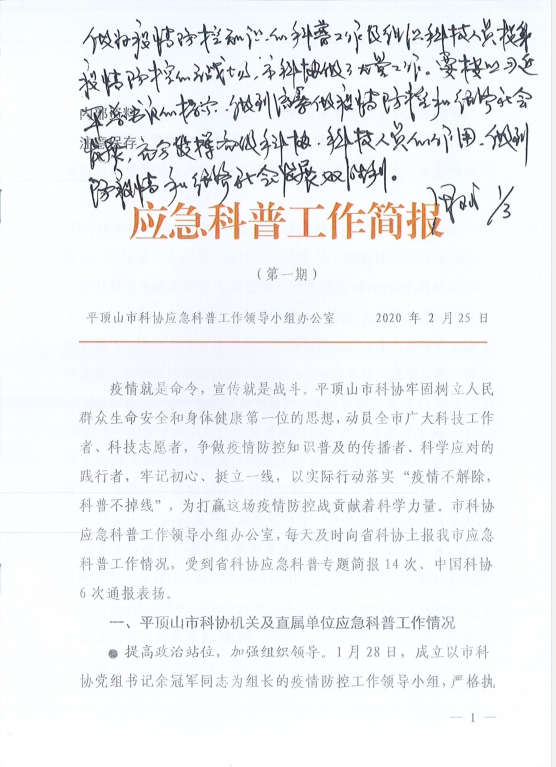 做好疫情防控知识的科普工作及组织科技人员投身
疫情防控的主战场,市科协做了大量工作。要按照习近
平总书记的指示,做到统筹做疫情防控和经济社会
发展,充分发挥市级科协、科技人员的作用,做到
防疫情和经济社会发展双胜利。
1/3
内部资料
注意保存
应急科普工作简报
(第一期)
平顶山市科协应急科普工作领导小组办公室 2020 年 2 月 25 日
疫情就是命令,宣传就是战斗。平顶山市科协牢固树立人民
群众生命安全和身体健康第一位的思想,动员全市广大科技工作
者、科技志愿者,争做疫情防控知识普及的传播者、科学应对的
践行者,牢记初心、挺立一线,以实际行动落实“疫情不解除,
科普不掉线”,为打赢这场疫情防控战贡献着科学力量。市科协
应急科普工作领导小组办公室,每天及时向省科协上报我市应急
科普工作情况,受到省科协应急科普专题简报 14 次、中国科协
6 次通报表扬。
一、平顶山市科协机关及直属单位应急科普工作情况
● 提高政治站位,加强组织领导。1 月 28 日,成立以市科
协党组书记余冠军同志为组长的疫情防控工作领导小组,严格执
— 1 —